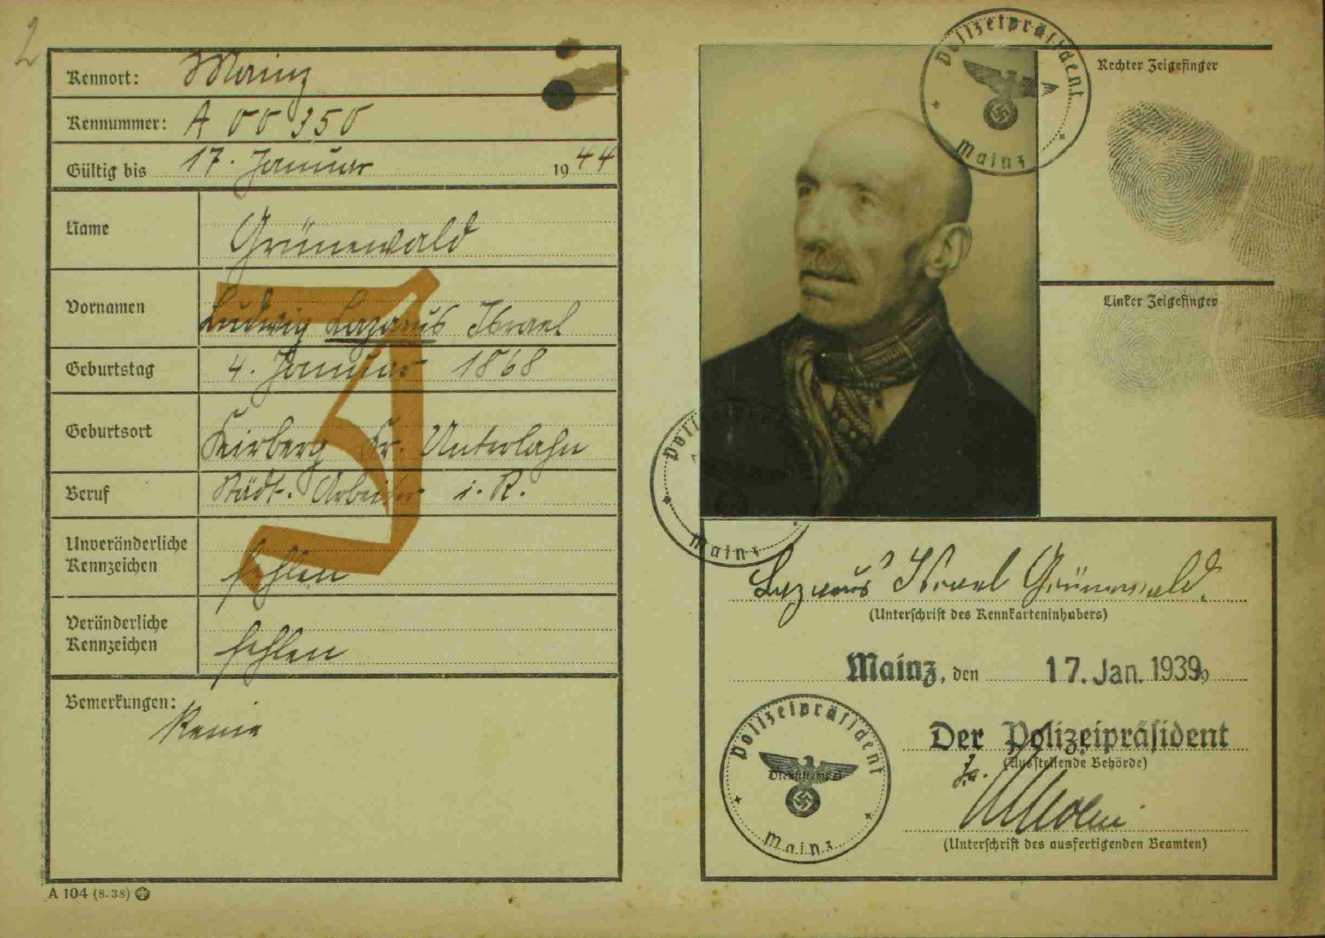 2
Kennort: Mainz
Kennummer: A 00350
Gültig bis 17. Januar 1944
Name Grünewald
Vornamen Ludwig Lazarus Israel
Geburtstag 4. Januar 1868
Geburtsort Kirberg Kr. Unterlahn
Beruf Städt. Arbeiter i. R.
Unveränderliche
Kennzeichen fehlen
Veränderliche
Kennzeichen fehlen
Bemerkungen:
Keine
J
A 104 (8.38)
Polizeipräsident
Mainz
Rechter Zeigefinger
Linker Zeigefinger
Mainz
Lazarus Israel Grünewald.
(Unterschrift des Kennkarteninhabers)
Mainz, den 17. Jan. 1939
Polizeipräsident
Mainz
Der Polizeipräsident
(Ausstellende Behörde)
(Unterschrift des ausfertigenden Beamten)